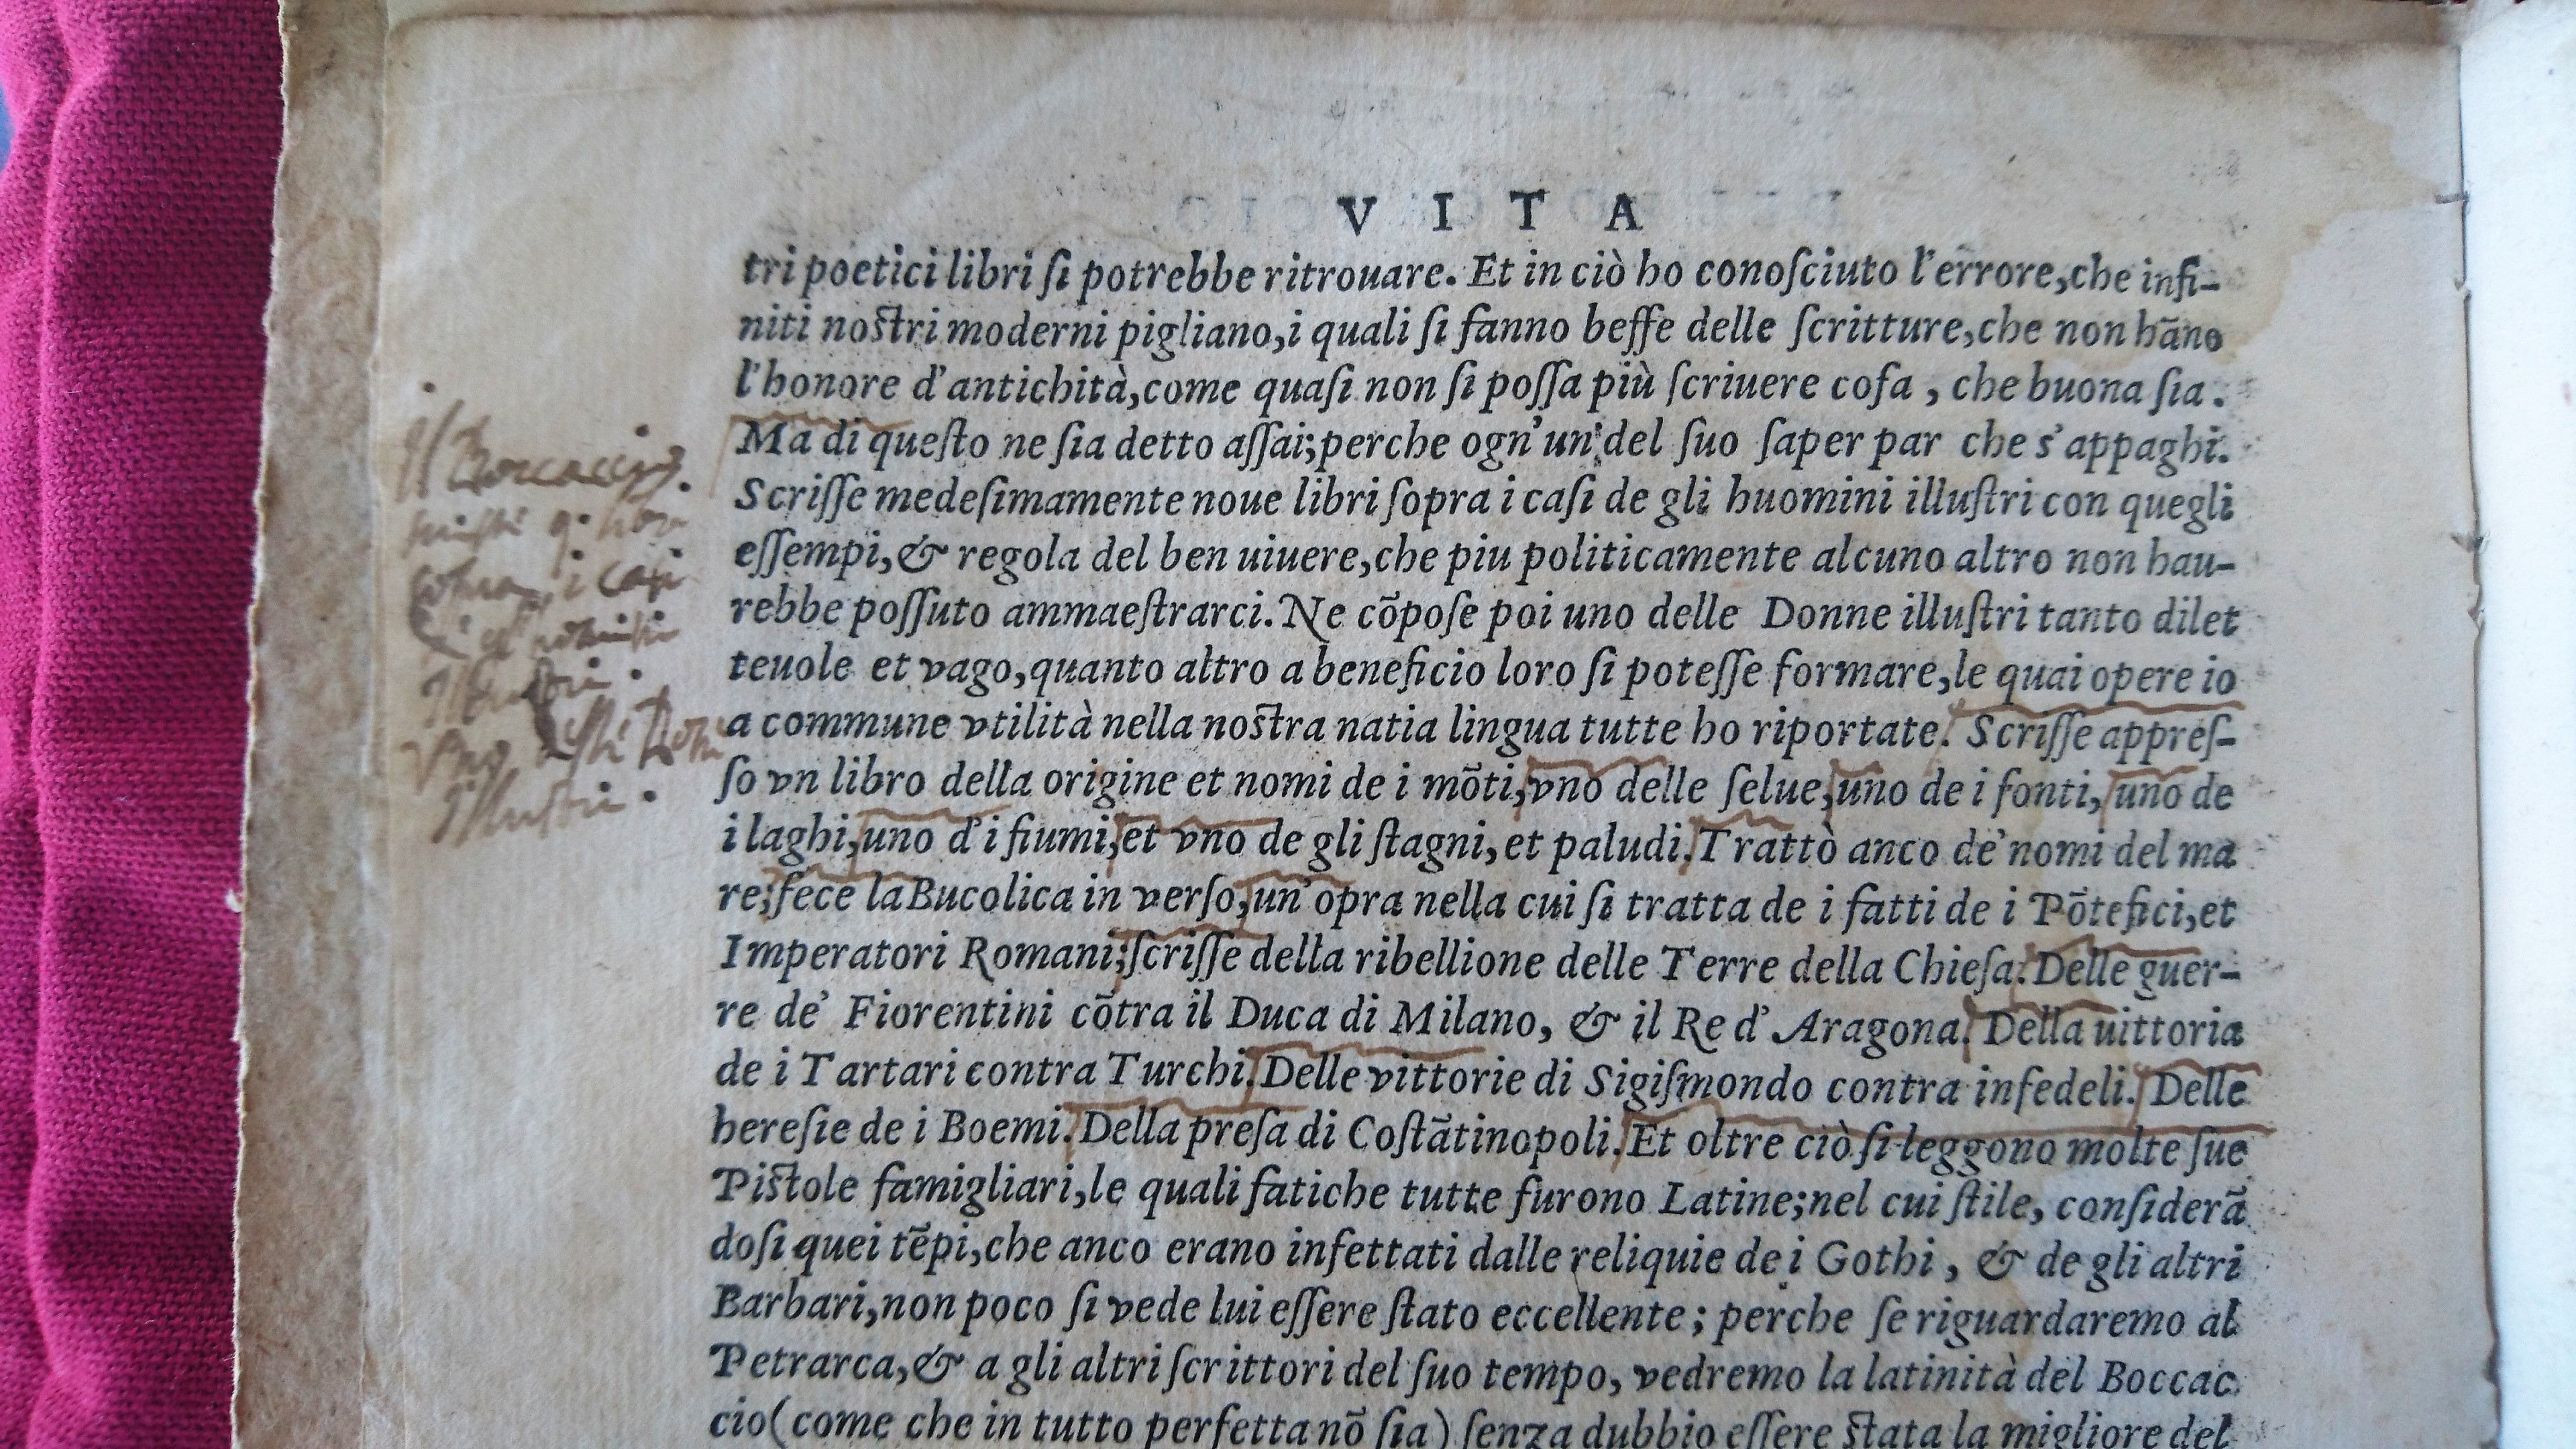 VITA
tri poetici libri ſi potrebbe ritrouare. Et in ciò ho conoſciuto l'errore, che infi-
niti noſtri moderni pigliano, i quali ſi fanno beffe delle ſcritture, che non hāno
l'honore d'antichità, come quaſi non ſi poſſa più ſcriuere coſa, che buona ſia.
Ma di queſto ne ſia detto aſſai; perche ogn'un' del ſuo ſaper par che s'appaghi.
Scriſſe medeſimamente noue libri ſopra i caſi de gli huomini illuſtri con quegli
eſſempi, & regola del ben uiuere, che piu politicamente alcuno altro non hau-
rebbe poſſuto ammaeſtrarci. Ne cōpoſe poi uno delle Donne illuſtri tanto dilet
teuole et vago, quanto altro a beneficio loro ſi poteſſe formare, le quai opere io
a commune vtilità nella noſtra natia lingua tutte ho riportate. Scriſſe appreſ-
ſo vn libro della origine et nomi de i mōti, vno delle ſelue, uno de i fonti, uno de
i laghi, uno d'i fiumi, et vno de gli ſtagni, et paludi. Trattò anco de' nomi del ma
re; fece la Bucolica in verſo, un'opra nella cui ſi tratta de i fatti de i Pōtefici, et
Imperatori Romani; ſcriſſe della ribellione delle Terre della Chieſa. Delle guer-
re de' Fiorentini cōtra il Duca di Milano, & il Re d'Aragona. Della uittoria
de i Tartari contra Turchi. Delle vittorie di Sigiſmondo contra infedeli. Delle
hereſie de i Boemi. Della preſa di Coſtātinopoli. Et oltre ciò ſi leggono molte ſue
Piſtole famigliari, le quali fatiche tutte furono Latine; nel cui ſtile, conſiderā
doſi quei tēpi, che anco erano infettati dalle reliquie de i Gothi, & de gli altri
Barbari, non poco ſi vede lui eſſere ſtato eccellente; perche ſe riguardaremo al
Petrarca, & a gli altri ſcrittori del ſuo tempo, vedremo la latinità del Boccac
cio (come che in tutto perfetta nō ſia) ſenza dubbio eſſere ſtata la migliore del
il Boccaccio.
i casi
Illustri.
Illustri.